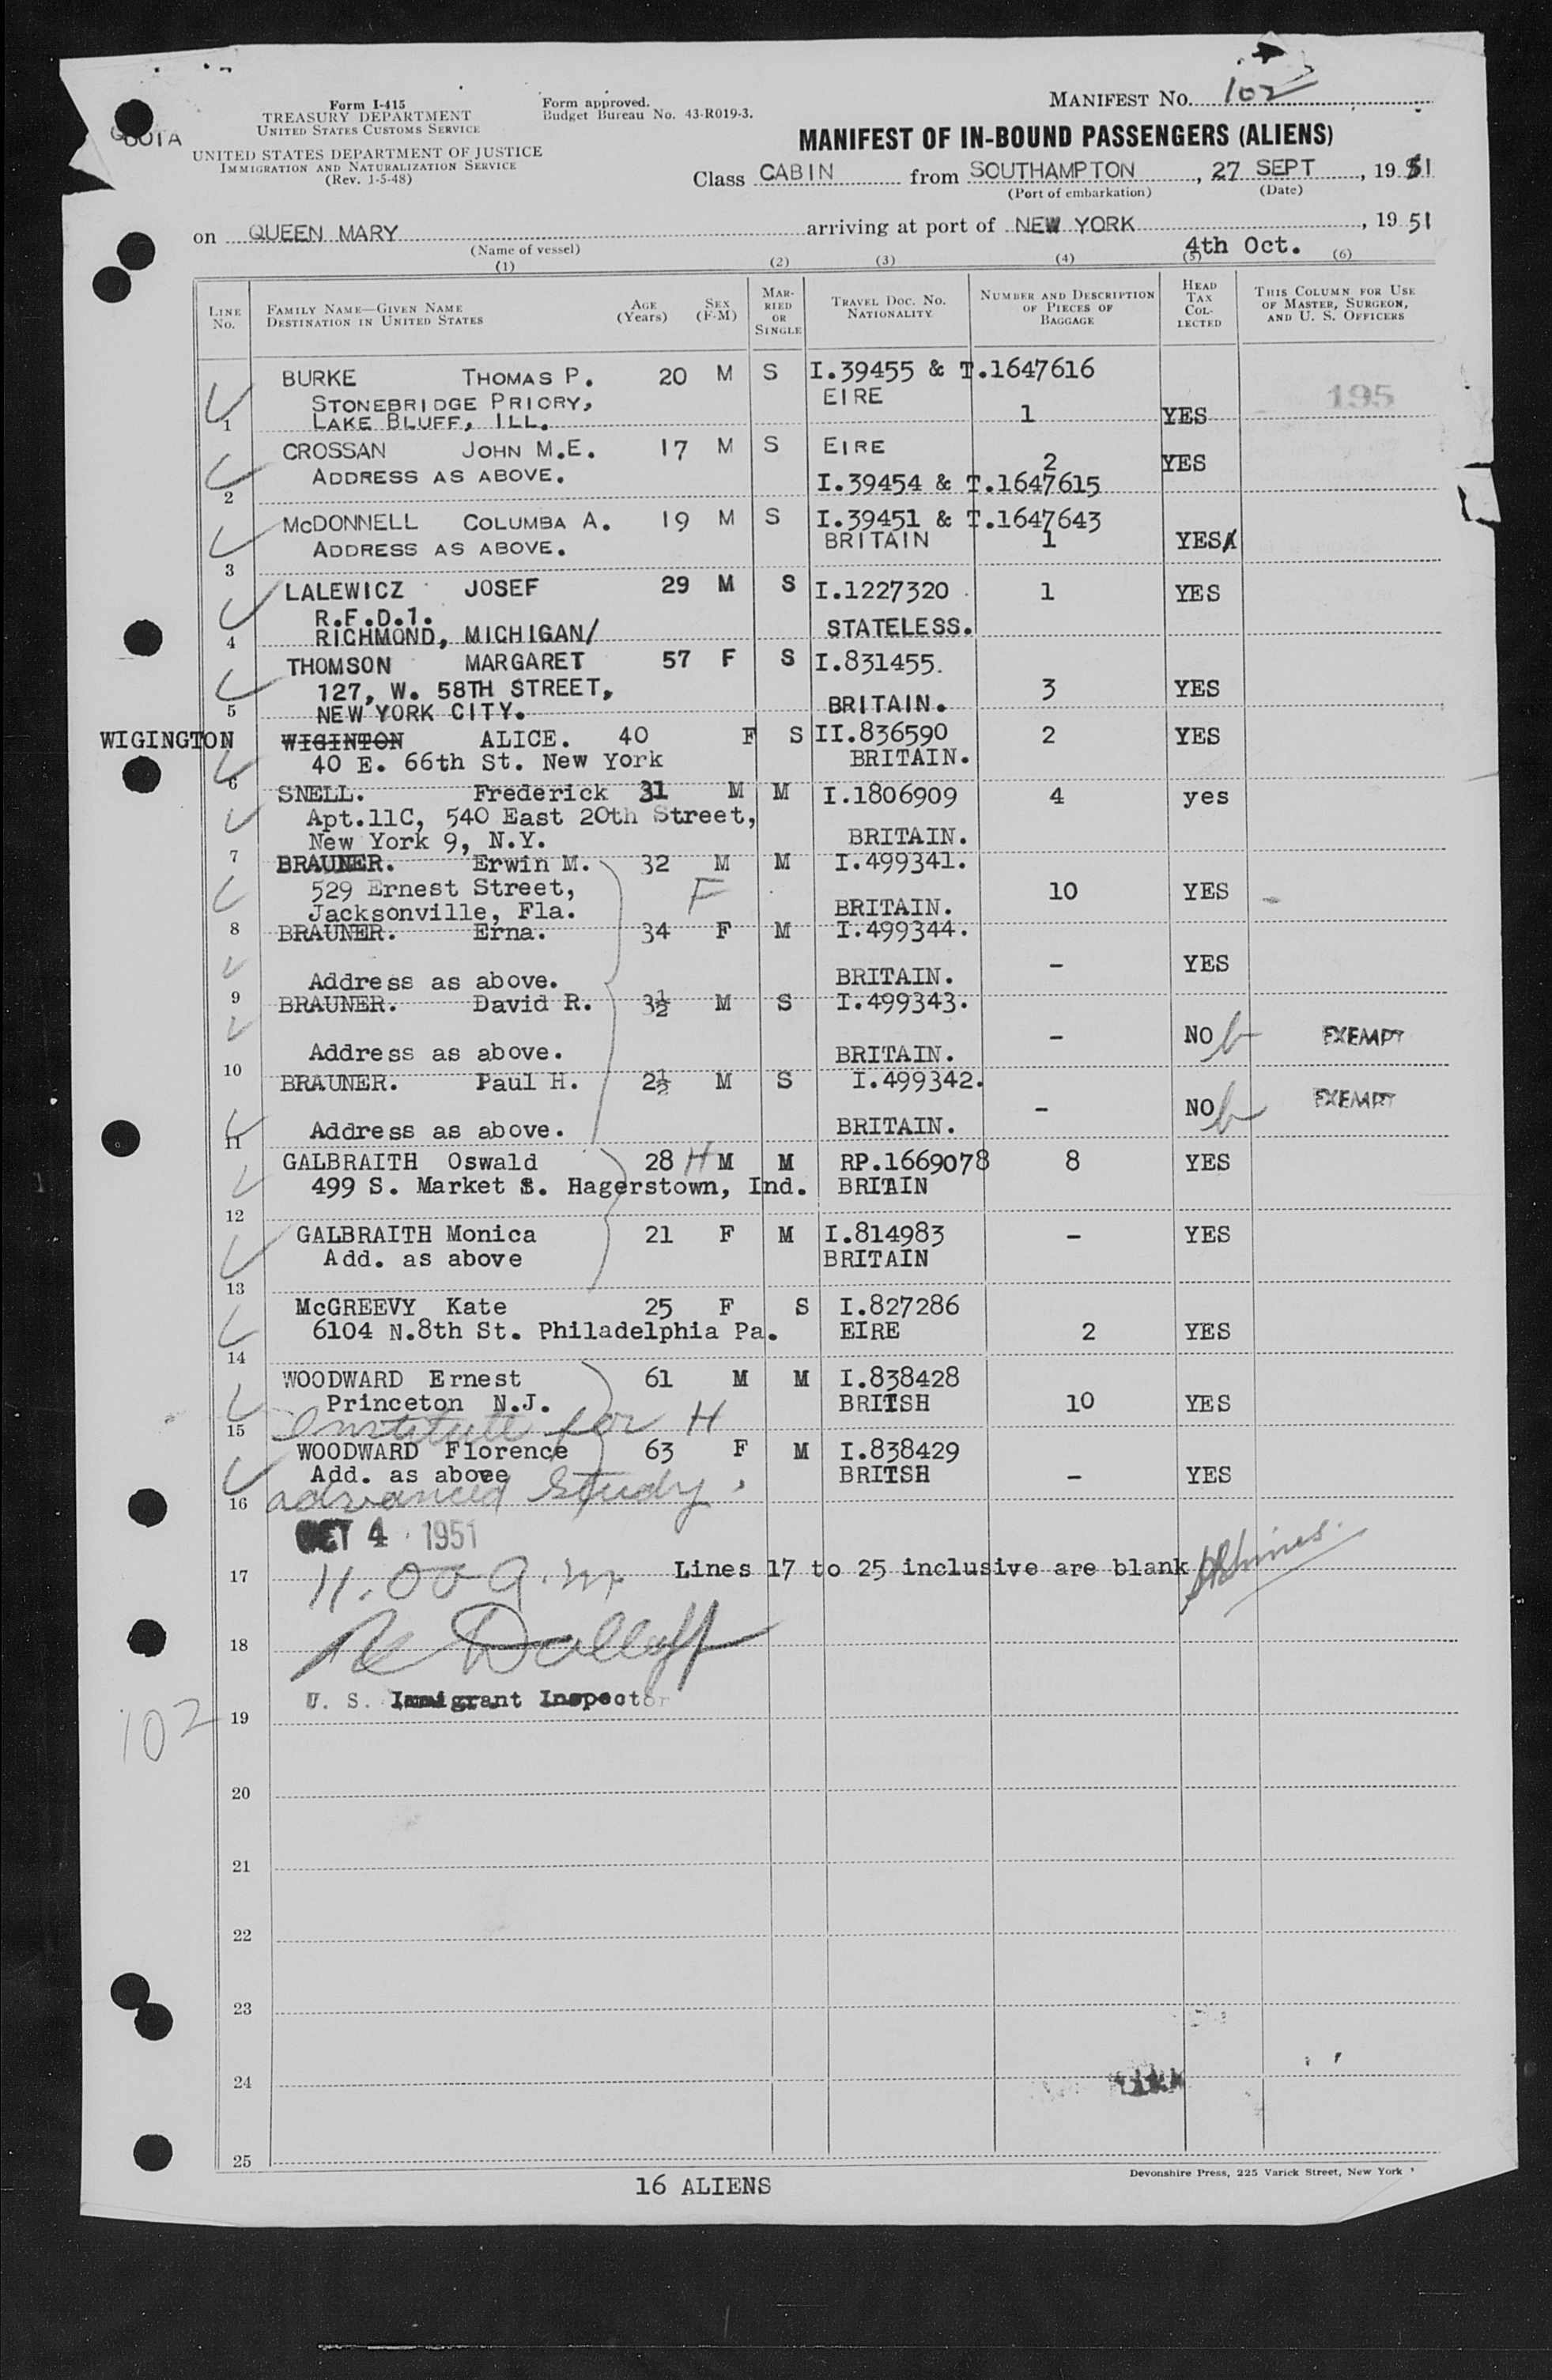 MANIFEST NO. 102
Form I-415
TREASURY DEPARTMENT
UNITED STATES CUSTOMS SERVICE
Form approved.
Budget Bureau No. 43-R019-3.
UNITED STATES DEPARTMENT OF JUSTICE
IMMIGRATION AND NATURALIZATION SERVICE
(Rev. 1-5-48)
MANIFEST OF IN-BOUND PASSENGERS (ALIENS)
Class CABIN from SOUTHAMPTON, 27 SEPT, 1951
(Port of embarkation) (Date)
on QUEEN MARY arriving at port of NEW YORK, 1951
(Name of vessel) 4th Oct.
(1) (2) (3) (4) (5) (6)
LINE NO. FAMILY NAME—GIVEN NAME DESTINATION IN UNITED STATES AGE (Years) SEX (F-M) MARRIED OR SINGLE TRAVEL DOC. NO. NATIONALITY NUMBER AND DESCRIPTION OF PIECES OF BAGGAGE HEAD TAX COLLECTED THIS COLUMN FOR USE OF MASTER, SURGEON, AND U. S. OFFICERS
BURKE THOMAS P. 20 M S I.39455 & T.1647616
STONEBRIDGE PRIORY, EIRE 195
1 LAKE BLUFF, ILL. 1 YES
CROSSAN JOHN M.E. 17 M S EIRE
ADDRESS AS ABOVE. 2 YES
2 I.39454 & T.1647615
McDONNELL COLUMBA A. 19 M S I.39451 & T.1647643
ADDRESS AS ABOVE. BRITAIN 1 YES
3
LALEWICZ JOSEF 29 M S I.1227320 1 YES
R.F.D.1.
4 RICHMOND, MICHIGAN/ STATELESS.
THOMSON MARGARET 57 F S I.831455.
127, W. 58TH STREET, 3 YES
5 NEW YORK CITY. BRITAIN.
WIGINGTON WIGINTON ALICE. 40 F S II.836590 2 YES
40 E. 66th St. New York BRITAIN.
6
SNELL. Frederick 31 M M I.1806909 4 yes
Apt.11C, 540 East 20th Street,
New York 9, N.Y. BRITAIN.
7
BRAUNER. Erwin M. 32 M M I.499341.
529 Ernest Street, F 10 YES
Jacksonville, Fla. BRITAIN.
8
BRAUNER. Erna. 34 F M I.499344.
- YES
Address as above. BRITAIN.
9
BRAUNER. David R. 3½ M S I.499343.
- NO EXEMPT
Address as above. BRITAIN.
10
BRAUNER. Paul H. 2½ M S I.499342.
- NO EXEMPT
11 Address as above. BRITAIN.
GALBRAITH Oswald 28 H M M RP.1669078 8 YES
499 S. Market S. Hagerstown, Ind. BRITAIN
12
GALBRAITH Monica 21 F M I.814983 - YES
Add. as above BRITAIN
13
McGREEVY Kate 25 F S I.827286
6104 N.8th St. Philadelphia Pa. EIRE 2 YES
14
WOODWARD Ernest 61 M M I.838428
Princeton N.J. BRITSH 10 YES
15 Institute for H
WOODWARD Florence 63 F M I.838429
Add. as above BRITSH - YES
16 advanced Study.
OCT 4 1951
17 11.00 a.m Lines 17 to 25 inclusive are blank
18
U. S. Immigrant Inspector
19
102
20
21
22
23
24
25
16 ALIENS
Devonshire Press, 225 Varick Street, New York